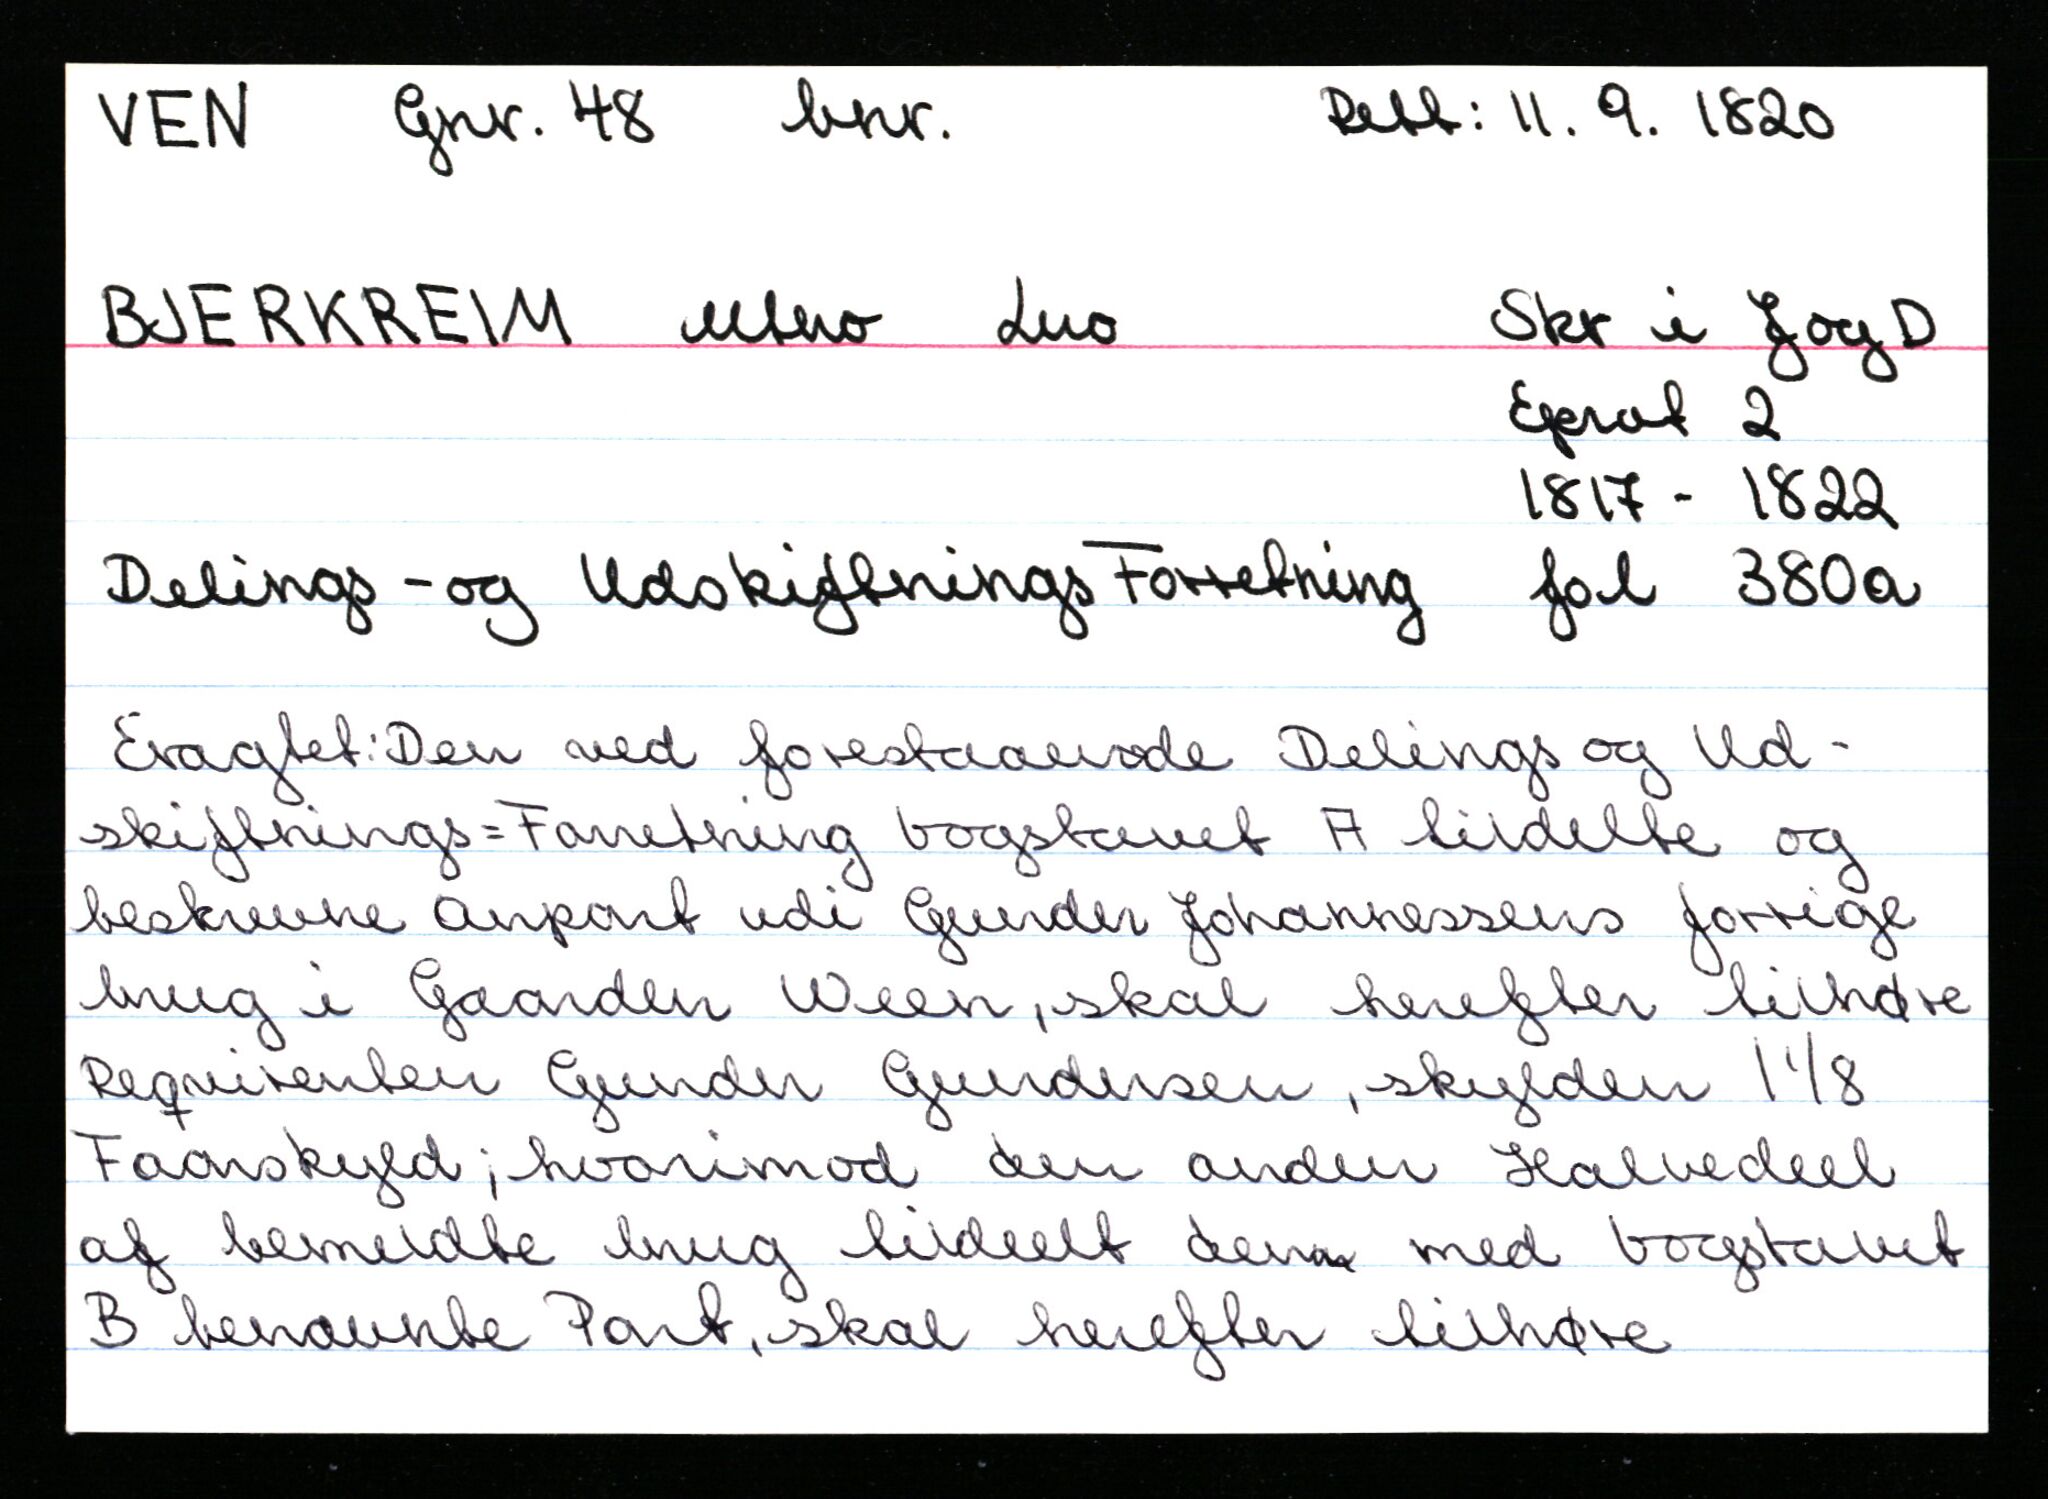 VEN Gnr. 48 bnr. Rett: 11. 9. 1820
BJERKREIM Utno Lno Skr i J og D
Egerst 2
1817 - 1822
Delings - og UdskiftningsForretning fol 380a
Eragtet: Den ved forestaaende Delings og Ud-
skiftnings=Forretning bogstavet A tildelte og
beskrevne Anpart udi Gunder Johannessens forrige
brug i Gaarden Ween, skal herefter tilhøre
Requirenten Gunder Gundersen, skylden 1 1/8
Faarskyld; hvorimod den anden Halvedeel
af bemeldte brug tildeelt den med bogstavet
B benævnte Part, skal herefter tilhøre